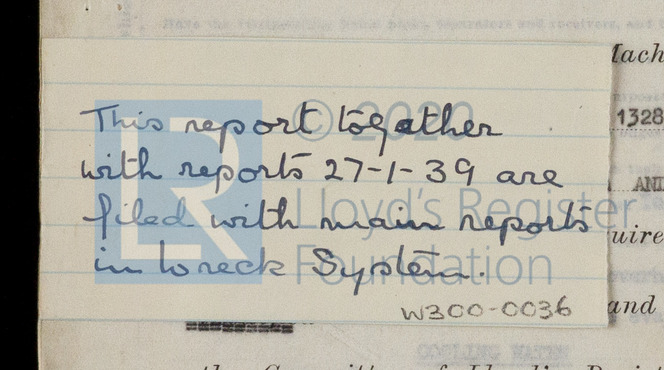 Mach
© 2020
This report together
1328
with reports 27-1-39 are
AND
LR
Lloyd's Register
filed with main reports
uire
Foundation
in Wreck System.
W300-0036
and
COOLING WATER